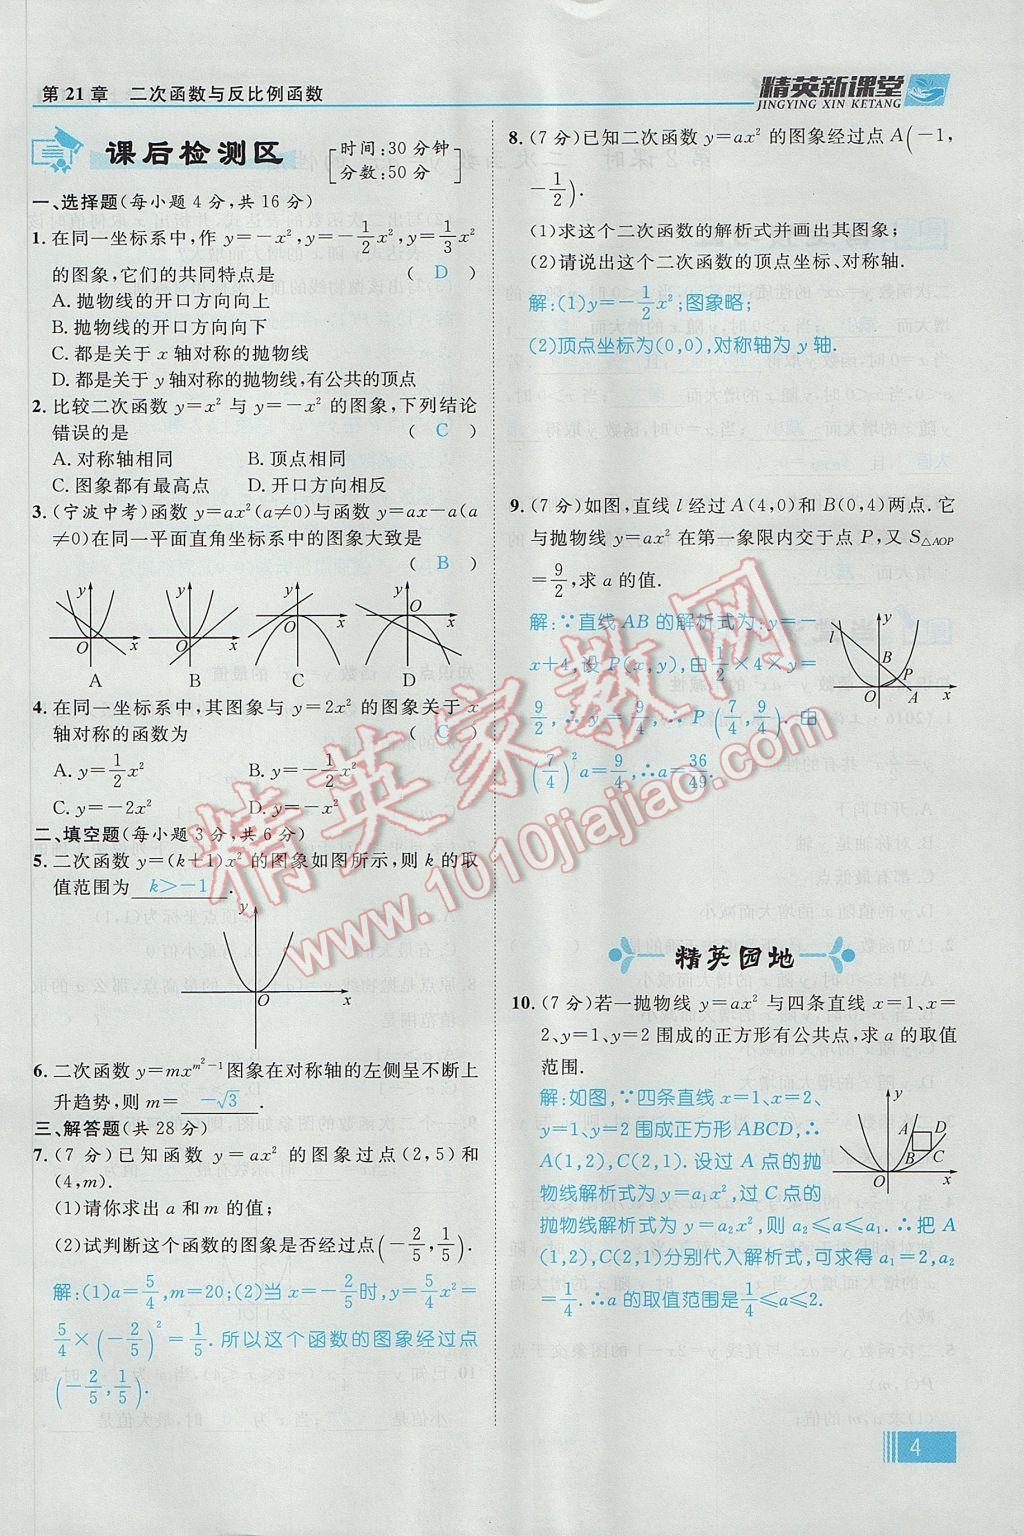 第21章 二次函数与反比例函数
精英新课堂
JINGYING XIN KETANG
课后检测区
[时间:30分钟
分数:50分]
一、选择题(每小题4分,共16分)
1.在同一坐标系中,作 y=-x²,y=-1/2x²,y=1/3x²
的图象,它们的共同特点是 ( D )
A.抛物线的开口方向向上
B.抛物线的开口方向向下
C.都是关于x轴对称的抛物线
D.都是关于y轴对称的抛物线,有公共的顶点
2.比较二次函数 y=x² 与 y=-x² 的图象,下列结论
错误的是 ( C )
A.对称轴相同 B.顶点相同
C.图象都有最高点 D.开口方向相反
3.(宁波中考)函数 y=ax²(a≠0)与函数 y=ax-a(a
≠0)在同一平面直角坐标系中的图象大致是
( B )
A B C D
4.在同一坐标系中,其图象与 y=2x² 的图象关于x
轴对称的函数为 ( C )
A.y=1/2x² B.y=-1/2x²
C.y=-2x² D.y=-x²
二、填空题(每小题3分,共6分)
5.二次函数 y=(k+1)x² 的图象如图所示,则k的取
值范围为 k>-1 .
y
O
x
6.二次函数 y=mx^(m²-1)图象在对称轴的左侧呈不断上
升趋势,则m= -√3 .
三、解答题(共28分)
7.(7分)已知函数 y=ax² 的图象过点(2,5)和
(4,m).
(1)请你求出a和m的值;
(2)试判断这个函数的图象是否经过点(-2/5,1/5).
解:(1)a=5/4,m=20;(2)当x=-2/5时,y=
5/4×(-2/5)²=1/5.所以这个函数的图象经过点
(-2/5,1/5).
8.(7分)已知二次函数 y=ax² 的图象经过点A(-1,
-1/2).
(1)求这个二次函数的解析式并画出其图象;
(2)请说出这个二次函数的顶点坐标、对称轴.
解:(1)y=-1/2x²;图象略;
(2)顶点坐标为(0,0),对称轴为y轴.
9.(7分)如图,直线l经过A(4,0)和B(0,4)两点.它
与抛物线 y=ax² 在第一象限内交于点P,又S△AOP
=9/2,求a的值.
解:∵直线AB的解析式为:y=-
x+4,设P(x,y),由1/2×4×y=
9/2,∴y=9/4,∴P(7/4,9/4).由
(7/4)²a=9/4,∴a=36/49.
y
l
B
P
O
A
x
精英园地
10.(7分)若一抛物线 y=ax² 与四条直线x=1、x=
2、y=1、y=2围成的正方形有公共点,求a的取值
范围.
解:如图,∵四条直线x=1、x=2、
y=1、y=2围成正方形ABCD,∴
A(1,2),C(2,1).设过A点的抛
物线解析式为y=a₁x²,过C点的
抛物线解析式为y=a₂x²,则a₂≤a≤a₁.∴把A
(1,2),C(2,1)分别代入解析式,可求得a₁=2,a₂
=1/4.∴a的取值范围是1/4≤a≤2.
y
A
D
B
C
O
x
精英家教网
www.1010jiajiao.com
4